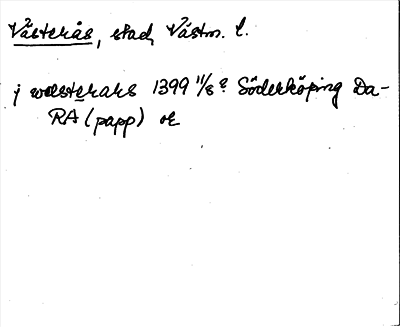 Västerås, stad, Västm. l.
j westerahs 1399 11/8? Söderköping Da-
RA (papp) or